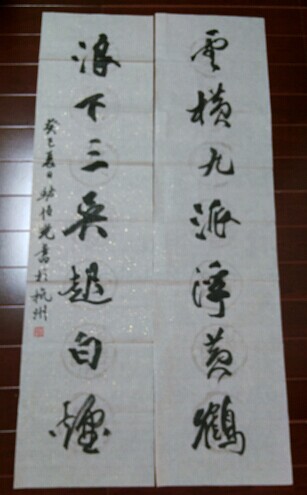 雲横九派浮黄鶴
浪下三吴起白煙
癸巳夏日駱恒光書於杭州